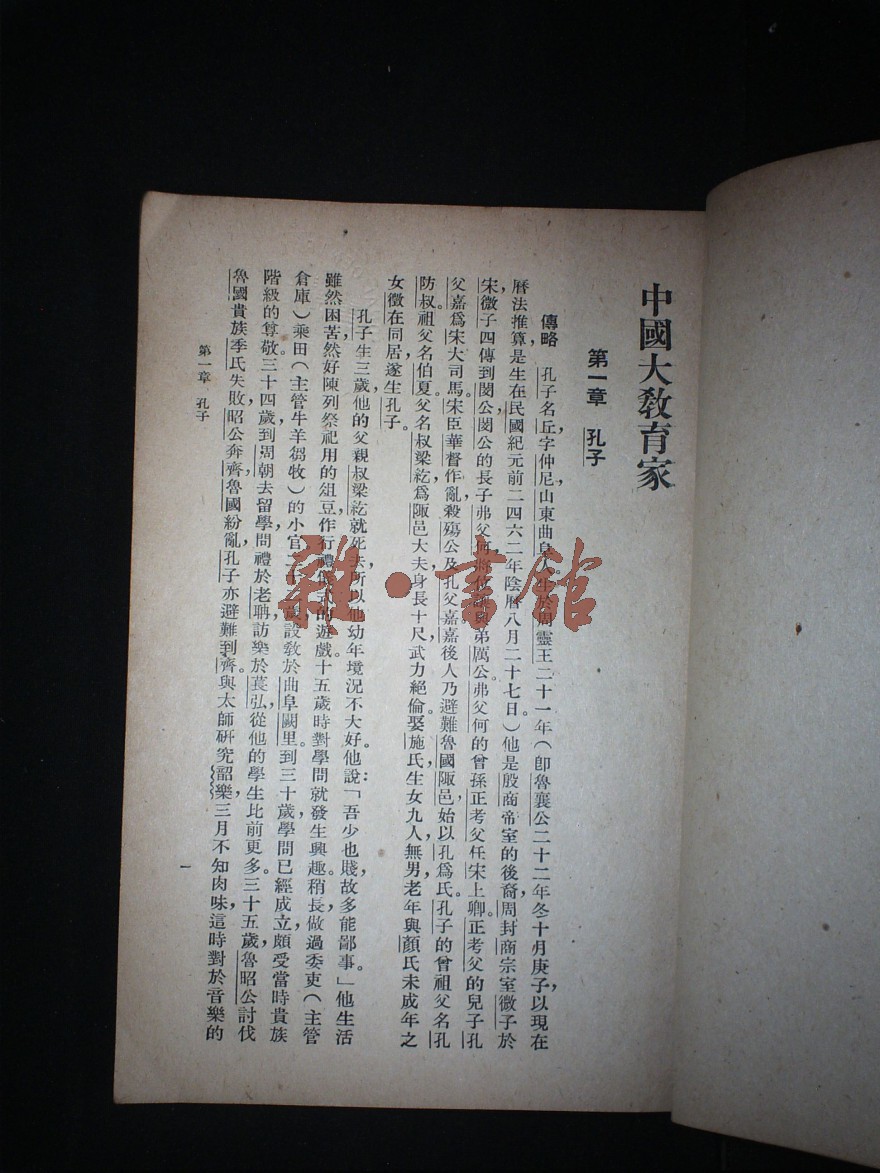 中國大教育家
第一章 孔子
傳略 孔子名丘，字仲尼，山東曲阜人。生於周靈王二十一年（即魯襄公二十二年冬十月庚子，以現在
曆法推算，是生在民國紀元前二四六二年陰曆八月二十七日）他是殷商帝室的後裔，周封商宗室微子於
宋，微子四傳到閔公，閔公的長子弗父何，將位 弟厲公。弗父何的曾孫正考父任宋上卿。正考父的兒子孔
父嘉爲宋大司馬。宋臣華督作亂，殺殤公及孔父嘉，嘉後人乃避難魯國陬邑，始以孔爲氏。孔子的曾祖父名孔
防叔，祖父名伯夏，父名叔梁紇，爲陬邑大夫，身長十尺，武力絕倫。娶施氏，生女九人，無男，老年與顏氏未成年之
女徵在同居，遂生孔子。
孔子生三歲，他的父親叔梁紇就死去，所以他幼年境況不大好。他說：「吾少也賤，故多能鄙事。」他生活
雖然困苦，然好陳列祭祀用的俎豆，作行禮儀式的遊戲。十五歲時對學問就發生興趣。稍長，做過委吏（主管
倉庫）乘田（主管牛羊芻牧）的小官。二十 歲，設教於曲阜闕里。到三十歲，學問已經成立，頗受當時貴族
階級的尊敬。三十四歲，到周朝去留學，問禮於老聃，訪樂於萇弘，從他的學生比前更多。三十五歲，魯昭公討伐
魯國貴族季氏失敗，昭公奔齊，魯國紛亂，孔子亦避難到齊。與太師研究韶樂，三月不知肉味，這時對於音樂的
第一章 孔子
一
雜·書館